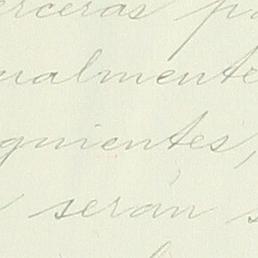 erceras p
ualmente
guientes,
serán s